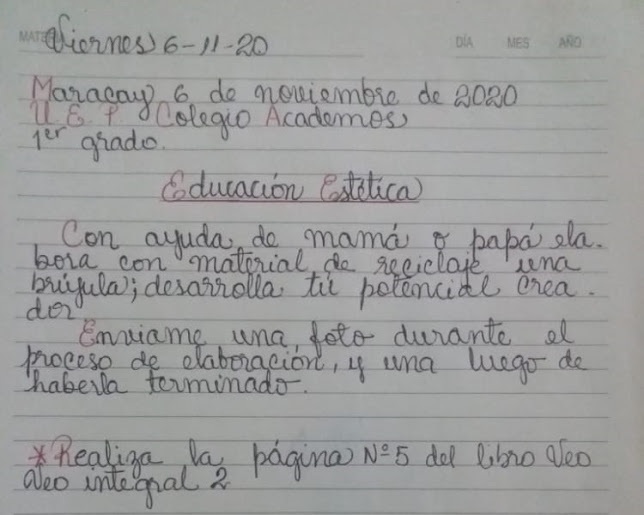 MATE
Viernes 6-11-20
DÍA MES AÑO
Maracay 6 de noviembre de 2020
U.E.P. Colegio Academos
1er grado.
Educación Estética
Con ayuda de mamá o papá ela-
bora con material de reciclaje una
brújula; desarrolla tu potencial crea-
dor
Enviame una foto durante el
proceso de elaboración, y una luego de
haberla terminado.
*Realiza la página Nº5 del libro Veo
Veo integral 2